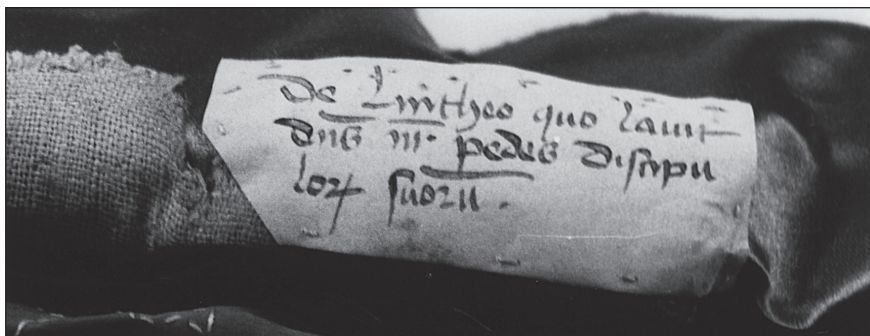 De Lintheo quo lauit
dns nr pedes discipu
loꝝ suoru .